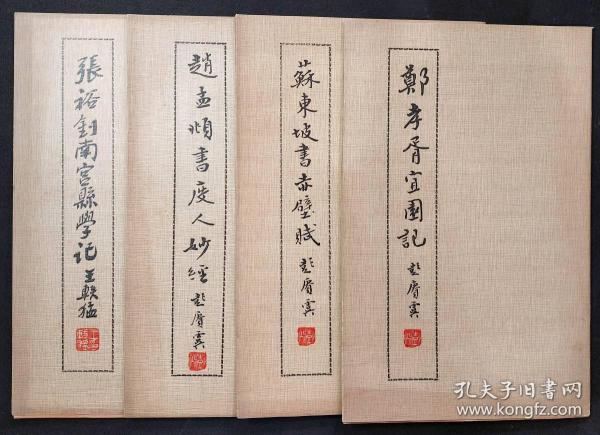 鄭孝胥宜園記
蘇東坡書赤壁賦
趙孟頫書度人妙經
張裕釗南宮縣學記
王軼猛
孔夫子旧书网
www.kongfz.com